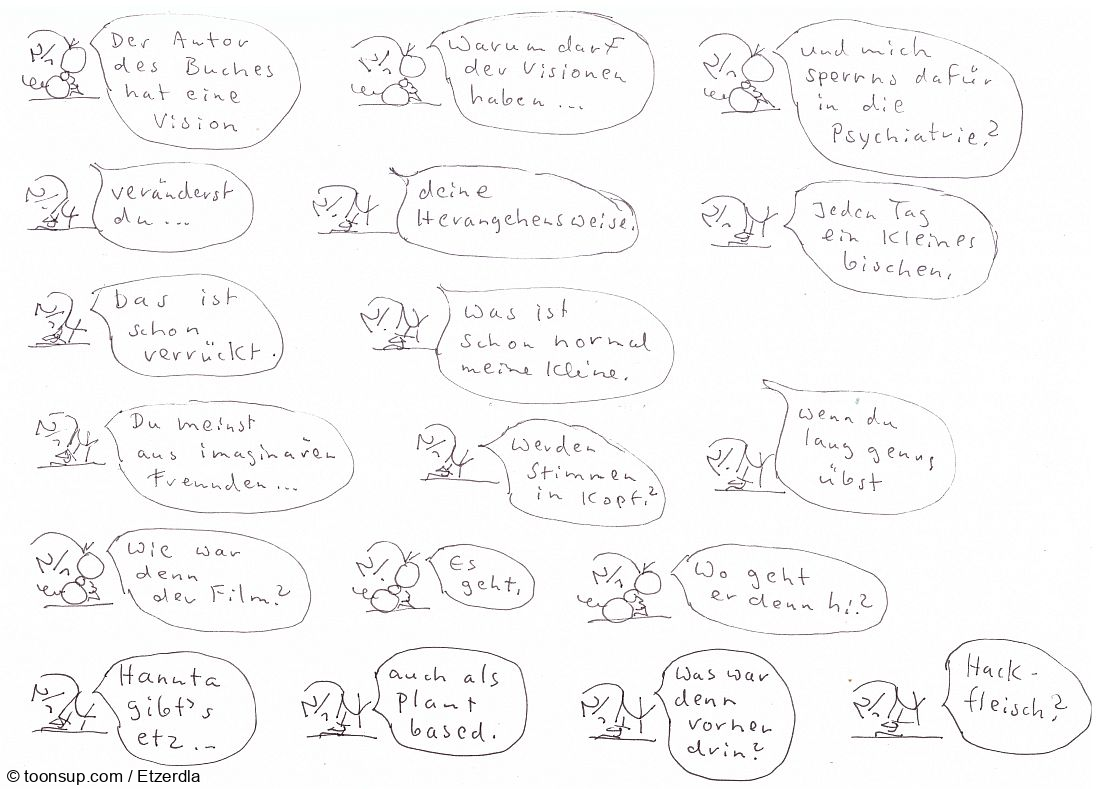 Der Autor
des Buches
hat eine
Vision
Warum darf
der Visionen
haben...
und mich
sperrns dafür
in die
Psychiatrie?
veränderst
du...
deine
Herangehensweise.
Jeden Tag
ein kleines
bischen.
Das ist
schon
verrückt.
Was ist
schon normal
meine Kleine.
Du meinst
aus imaginären
Freunden...
werden
Stimmen
in Kopf?
wenn du
lang genug
übst
Wie war
denn
der Film?
Es
geht.
Wo geht
er denn hi?
Hanuta
gibt's
etz...
auch als
Plant
based.
Was war
denn
vorher
drin?
Hack-
fleisch?
© toonsup.com / Etzerdla